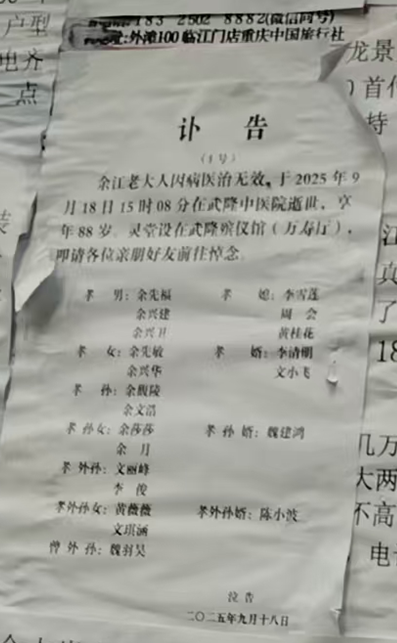 183 2502 8882(微信同号)
外滩100临江门店重庆中国旅行社
户型
电齐
点
龙景
首付
持
讣 告
(1号)
余江老大人因病医治无效,于2025年9
月18日15时08分在武隆中医院逝世,享
年88岁。灵堂设在武隆殡仪馆(万寿厅),
即请各位亲朋好友前往悼念。
孝 男:余先福 孝 媳:李雪莲
余兴建 周 会
余兴卫 黄桂花
孝 女:余先敏 孝 婿:李清明
余兴华 文小飞
孝 孙:余馥陵
余文浩
孝 孙女:余莎莎 孝 孙 婿:魏建鸿
余 月
孝 外孙:文丽峰
李 俊
孝外孙女:黄薇薇 孝外孙婿:陈小波
文琪涵
曾 外 孙:魏羽昊
泣 告
二〇二五年九月十八日
真
了
18
几万
大两
不高
电